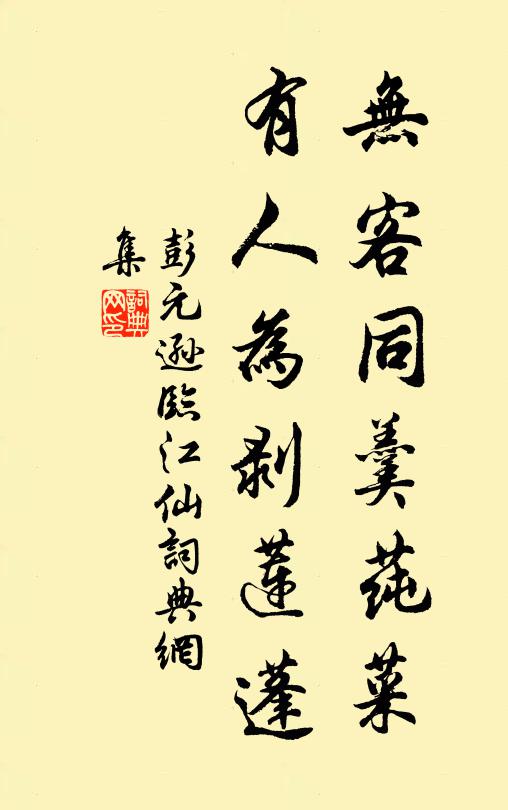 無客同羹蒓菜
有人為剥蓮蓬
彭元遜臨江仙詞典網
集
詞典
网印